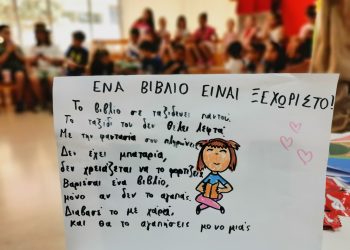 ΕΝΑ ΒΙΒΛΙΟ ΕΙΝΑΙ ΞΕΧΩΡΙΣΤΟ!
Το βιβλίο σε ταξιδεύει παντού.
Το ταξίδι του δεν θέλει λεφτά
Με την φαντασία σου πληρώνεις
Δεν έχει μπαταρία,
δεν χρειάζεται να το φορτίζεις
Βαριέσαι ένα βιβλίο,
μόνο αν δεν το αγαπάς.
Διάβασέ το με χαρά,
και θα το αγαπήσεις μονομιάς